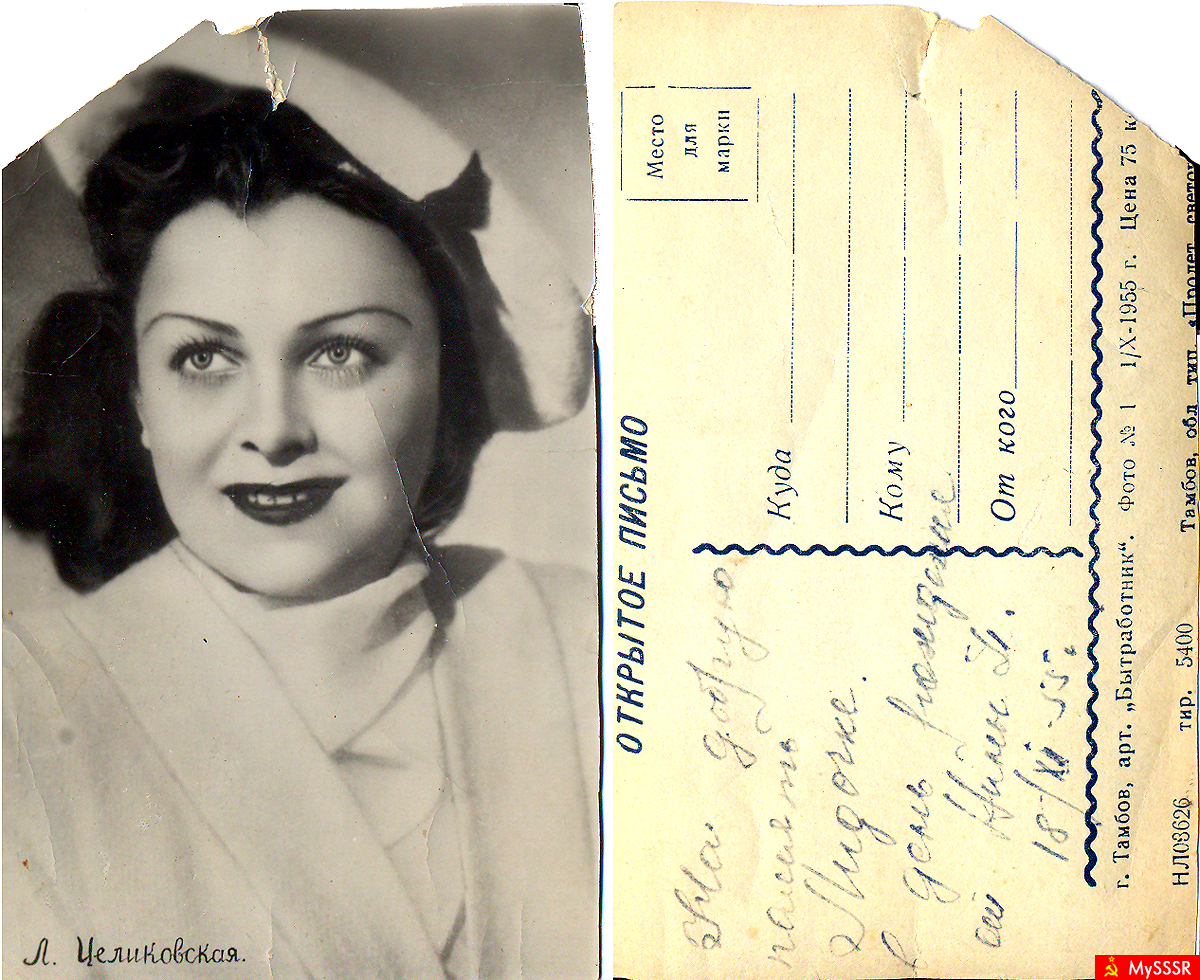 Л. Целиковская.
ОТКРЫТОЕ ПИСЬМО
Место
для
марки
Куда
Кому
От кого
На добрую
память
Лидочке.
В день рождения
от Нины Н.
18/XI-55г.
г. Тамбов, арт. „Бытработник“. Фото № 1 1/X-1955 г. Цена 75 к.
НЛ03626 тир. 5400 Тамбов, обл тип. «Пролет. светоч
MySSSR